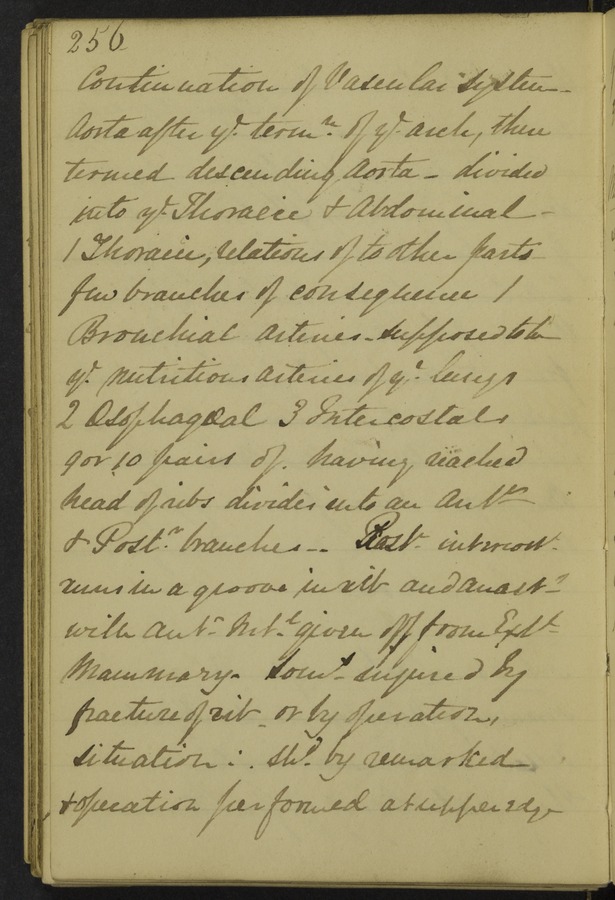 256
Continuation of Vascular System -
Aorta after ye. termn. of ye. arch, then
termed descending Aorta - divided
into ye. Thoracic & Abdominal -
1 Thoracic, relations of to other parts
few branches of consequence 1
Bronchial arteries - supposed to be
ye. nutritious arteries of ye. lungs
2 Esophagæal 3 Intercostals
9 or 10 pairs of. having reached
head of ribs divides into an Antr.
& Postr. branches -- Post. intercost.
runs in a groove in rib and anasts.
with antr. Int.t given off from Ext.
Mammary - somt. injured by
fracture of rib - or by operation,
situation ∴ shd. by remarked
& operation performed at upper edge